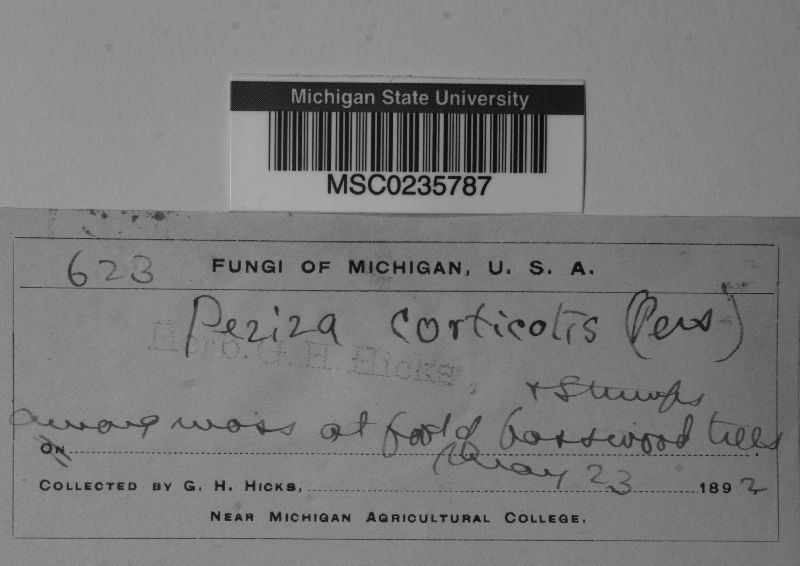 Michigan State University
MSC0235787
623 FUNGI OF MICHIGAN, U. S. A.
Peziza corticolis (Pers)
Herb. G. H. Hicks.
& Stumps
among moss at foot of basswood trees
ON
May 23
COLLECTED BY G. H. HICKS, 1892
NEAR MICHIGAN AGRICULTURAL COLLEGE.